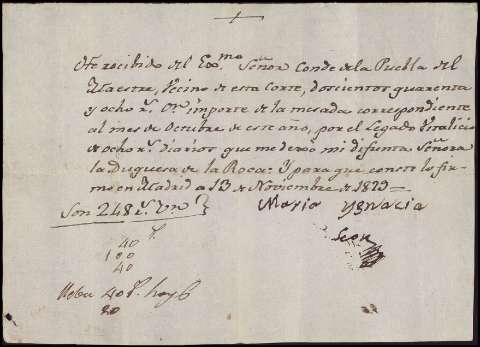 He recibido del Exc.mo Señor Conde de la Puebla del
Maestre, Vecino de esta Corte, doscientos quarenta
y ocho r.s V.n importe de la mesada correspondiente
al mes de Octubre de este año, por el Legado Vitalicio
de ocho r.s diarios que me dexó mi difunta Señora
la Duquesa de la Roca. Y para que conste lo fir-
mo en Madrid a 13 de Noviembre de 1829
Son 248 r.s V.n
Maria Ygnacia
40
100
40
40
20